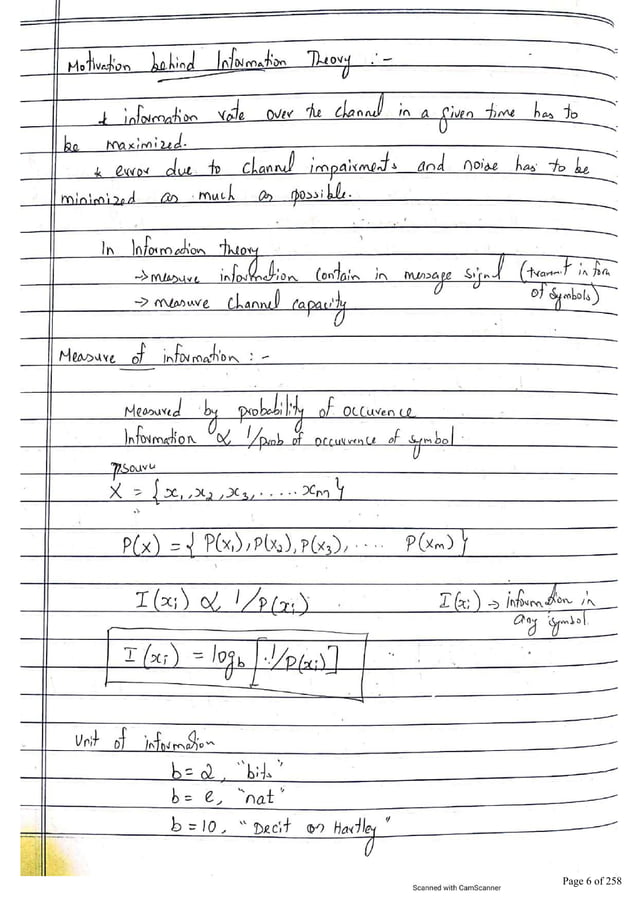 Motivation behind Information Theory :-
* information rate over the channel in a given time has to
be maximized.
* error due to channel impairments and noise has to be
minimized as much as possible.
In Information theory
→ measure information contain in message signal (transmit in form
of symbols)
→ measure channel capacity
Measure of information : -
Measured by probability of occurence
Information ∝ 1/prob of occurrence of symbol
X = {x₁, x₂, x₃, ..... xm}
P(x) = { P(x₁), P(x₂), P(x₃), .... P(xm) }
I(xi) ∝ 1/P(xi) I(xi) → information in
any symbol
I(xi) = logb [1/P(xi)]
Unit of information
b = 2, "bits"
b = e, "nat"
b = 10, "Decit or Hartley"
Scanned with CamScanner
Page 6 of 258